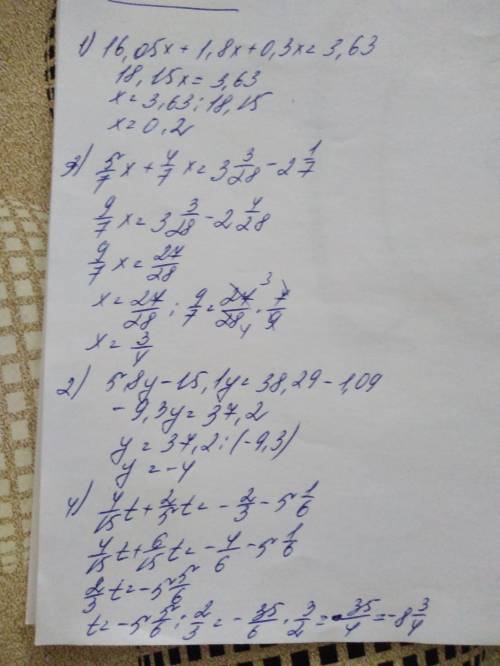 1) 16,05x + 1,8x + 0,3x = 3,63
18,15x = 3,63
x = 3,63 : 18,15
x = 0,2
3) 5/7 x + 4/7 x = 3 3/28 - 2 1/7
9/7 x = 3 3/28 - 2 4/28
9/7 x = 27/28
x = 27/28 : 9/7 = 27 3/28 4 · 7/9
x = 3/4
2) 5,8y - 15,1y = 38,29 - 1,09
- 9,3y = 37,2
y = 37,2 : (-9,3)
y = -4
4) 4/15 t + 2/5 t = - 2/3 - 5 1/6
4/15 t + 6/15 t = - 4/6 - 5 1/6
2/3 t = -5 5/6
t = -5 5/6 : 2/3 = - 35/6 · 3/2 = - 35/4 = -8 3/4